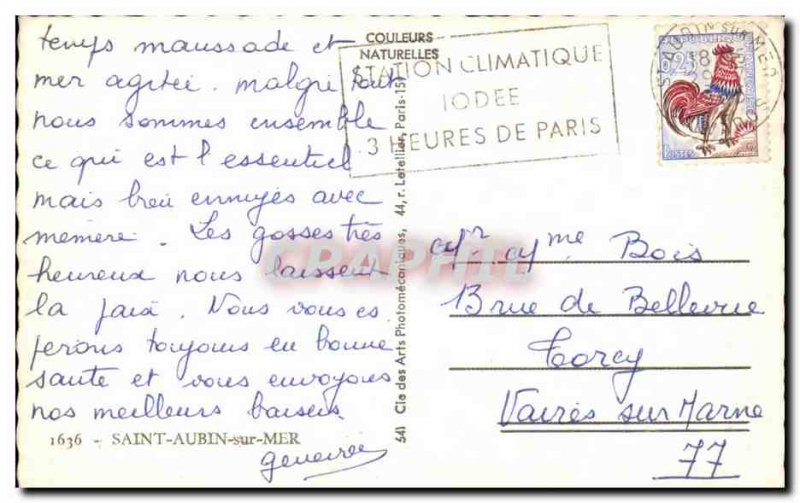 temps maussade et
mer agitée. malgré tout
nous sommes ensemble
ce qui est l'essentiel
mais bien ennuyés avec
mémère. Les gosses très
heureux nous laissent
la paix. Nous vous es
perons toujours en bonne
santé et vous envoyons
nos meilleurs baisers.
1636 - SAINT-AUBIN-sur-MER
geneviève
COULEURS
NATURELLES
641 Cie des Arts Photomécaniques, 44, r. Letellier, Paris-15e
STATION CLIMATIQUE
IODEE
3 HEURES DE PARIS
ST AUBIN SUR MER
18
0,25
CPAPHIL
Mr. Mme Bois
13 rue de Bellevue
Torcy
Vaires sur Marne
77